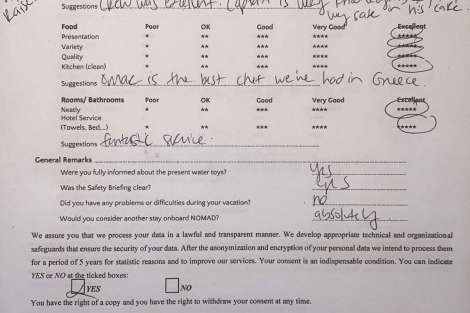 Suggestions Crew was excellent. Captain is very
very safe on his
Food Poor OK Good Very Good Excellent
Presentation * ** *** **** *****
Variety * ** *** **** *****
Quality * ** *** **** *****
Kitchen (clean) * ** *** **** *****
Suggestions OMAC is the best chef we've had in Greece.
Rooms/ Bathrooms Poor OK Good Very Good Excellent
Neatly * ** *** **** *****
Hotel Service
(Towels, Bed...) * ** *** **** *****
Suggestions fantastic service.
General Remarks
Were you fully informed about the present water toys? yes
Was the Safety Briefing clear? yes
Did you have any problems or difficulties during your vacation? no
Would you consider another stay onboard NOMAD? absolutely
We assure you that we process your data in a lawful and transparent manner. We develop appropriate technical and organizational
safeguards that ensure the security of your data. After the anonymization and encryption of your personal data we intend to process them
for a period of 5 years for statistic reasons and to improve our services. Your consent is an indispensable condition. You can indicate
YES or NO at the ticked boxes:
YES NO
You have the right of a copy and you have the right to withdraw your consent at any time.